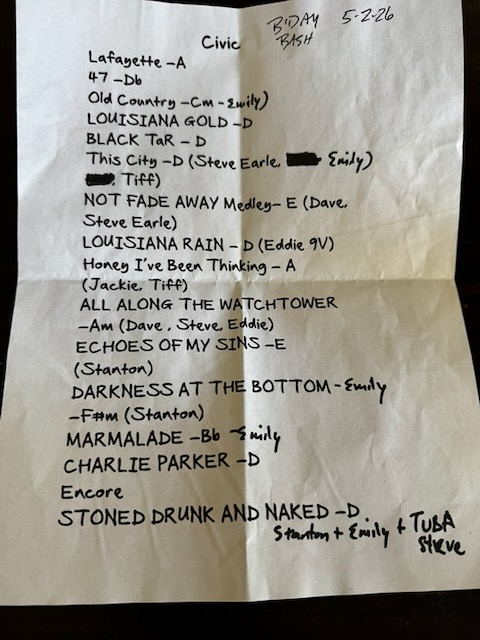 B'DAY BASH 5-2-26
Civic
Lafayette -A
47 -Db
Old Country -Cm - Emily)
LOUISIANA GOLD -D
BLACK TaR - D
This City -D (Steve Earle, Emily)
, Tiff)
NOT FADE AWAY Medley- E (Dave,
Steve Earle)
LOUISIANA RAIN - D (Eddie 9V)
Honey I've Been Thinking - A
(Jackie, Tiff)
ALL ALONG THE WATCHTOWER
-Am (Dave, Steve, Eddie)
ECHOES OF MY SINS -E
(Stanton)
DARKNESS AT THE BOTTOM - Emily
-F#m (Stanton)
MARMALADE -Bb - Emily
CHARLIE PARKER -D
Encore
STONED DRUNK AND NAKED -D
Stanton + Emily + TUBA
Steve